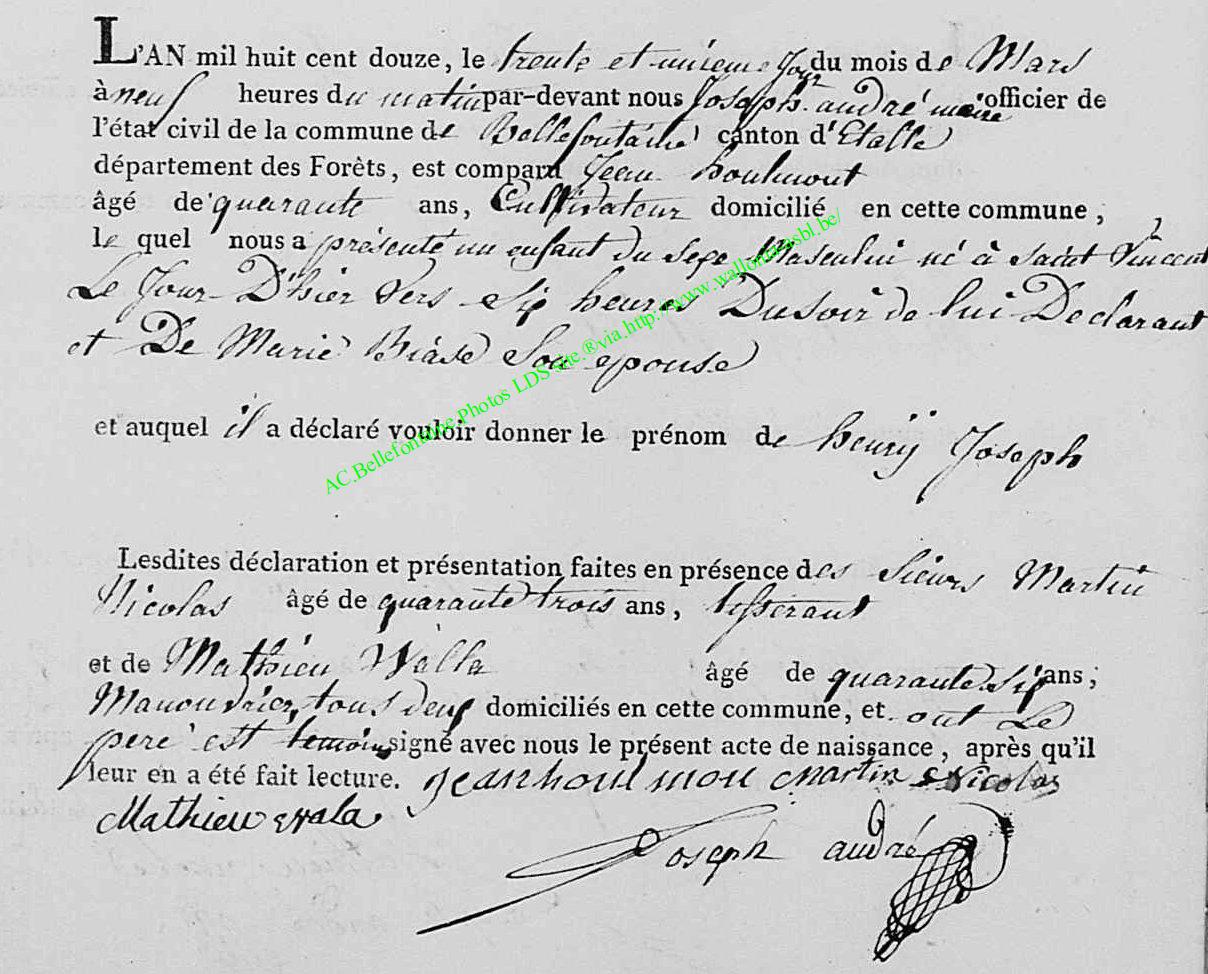 L'AN mil huit cent douze, le trente et unieme Jour du mois de Mars
à neuf heures du matin par-devant nous Joseph andré maire officier de
l'état civil de la commune de Bellefontaine canton d'Etalle
département des Forêts, est comparu Jean houlmont
âgé de quarante ans, Cultivateur domicilié en cette commune,
le quel nous a présenté un enfant du Sexe Masculin né à Saint Vincent
Le Jour D'hier Vers Six heures Du soir de lui Declarant
et De Marie Biase Son epouse
et auquel il a déclaré vouloir donner le prénom de henrij Joseph
Lesdites déclaration et présentation faites en présence des Sieurs Martin
Nicolas âgé de quarante trois ans, tisserant
et de Mathieu Walla âgé de quarante Six ans;
Manouvrier, tous deux domiciliés en cette commune, et ont Le
pere est temoins signé avec nous le présent acte de naissance, après qu'il
leur en a été fait lecture. jean houlmou martin Nicolas
Mathieu wala
Joseph andré
AC.Bellefontaine.Photos LDS site.®via.http://www.wallonia-asbl.be/